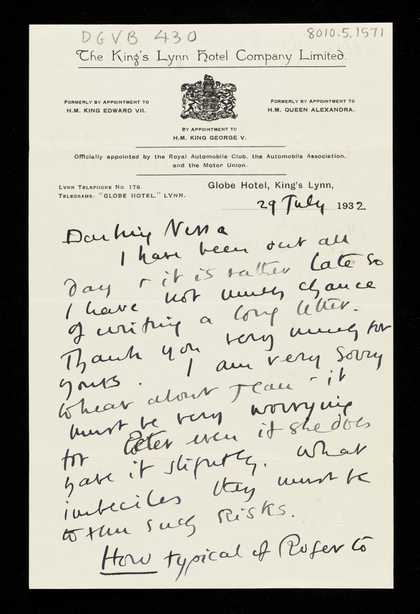 DGVB 430
8010.5.1571
The King's Lynn Hotel Company Limited.
FORMERLY BY APPOINTMENT TO
H.M. KING EDWARD VII.
FORMERLY BY APPOINTMENT TO
H.M. QUEEN ALEXANDRA.
BY APPOINTMENT TO
H.M. KING GEORGE V.
Officially appointed by the Royal Automobile Club, the Automobile Association,
and the Motor Union.
LYNN TELEPHONE No. 176.
TELEGRAMS: "GLOBE HOTEL" LYNN.
Globe Hotel, King's Lynn,
29 July 1932
Darling Nessa
I have been out all
day & it is rather late so
I have not much chance
of writing a long letter.
Thank you very much for
yours. I am very sorry
to hear about Jean & it
must be very worrying
for Peter even if she does
have it slightly. What
imbeciles they must be
to run such risks.
How typical of Roger to